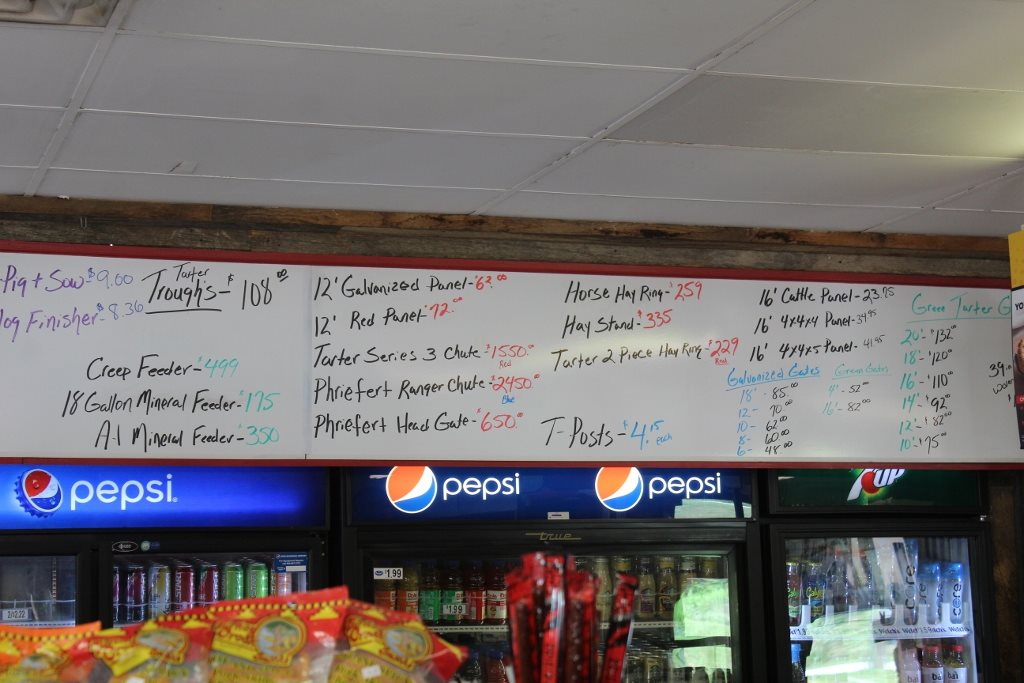 Pig + Sow - $9.00
Hog Finisher - $8.36
Tarter
Trough's - $108.00
Creep Feeder - $499
18 Gallon Mineral Feeder - $175
A-1 Mineral Feeder - $350
12' Galvanized Panel - $62.00
12' Red Panel - $72.00
Tarter Series 3 Chute - $1550.00
Red
Phriefert Ranger Chute - $2450.00
Blue
Phriefert Head Gate - $650.00
Horse Hay Ring - $259
Hay Stand - $335
Tarter 2 Piece Hay Ring - $229
Red
T-Posts - $4.15 each
16' Cattle Panel - 23.75
16' 4x4x4 Panel - 34.95
16' 4x4x5 Panel - 41.95
Galvanized Gates
18' - 85.00
12 - 70.00
10 - 62.00
8 - 60.00
6 - 48.00
Green Gates
4' - 52.00
16' - 82.00
Green Tarter G
20' - $132.00
18' - $120.00
16' - $110.00
14' - $92.00
12' - $82.00
10' - $75.00
39.
pepsi
pepsi
pepsi
7UP
true
true
$1.99
$1.99
2/$2.22
core
core